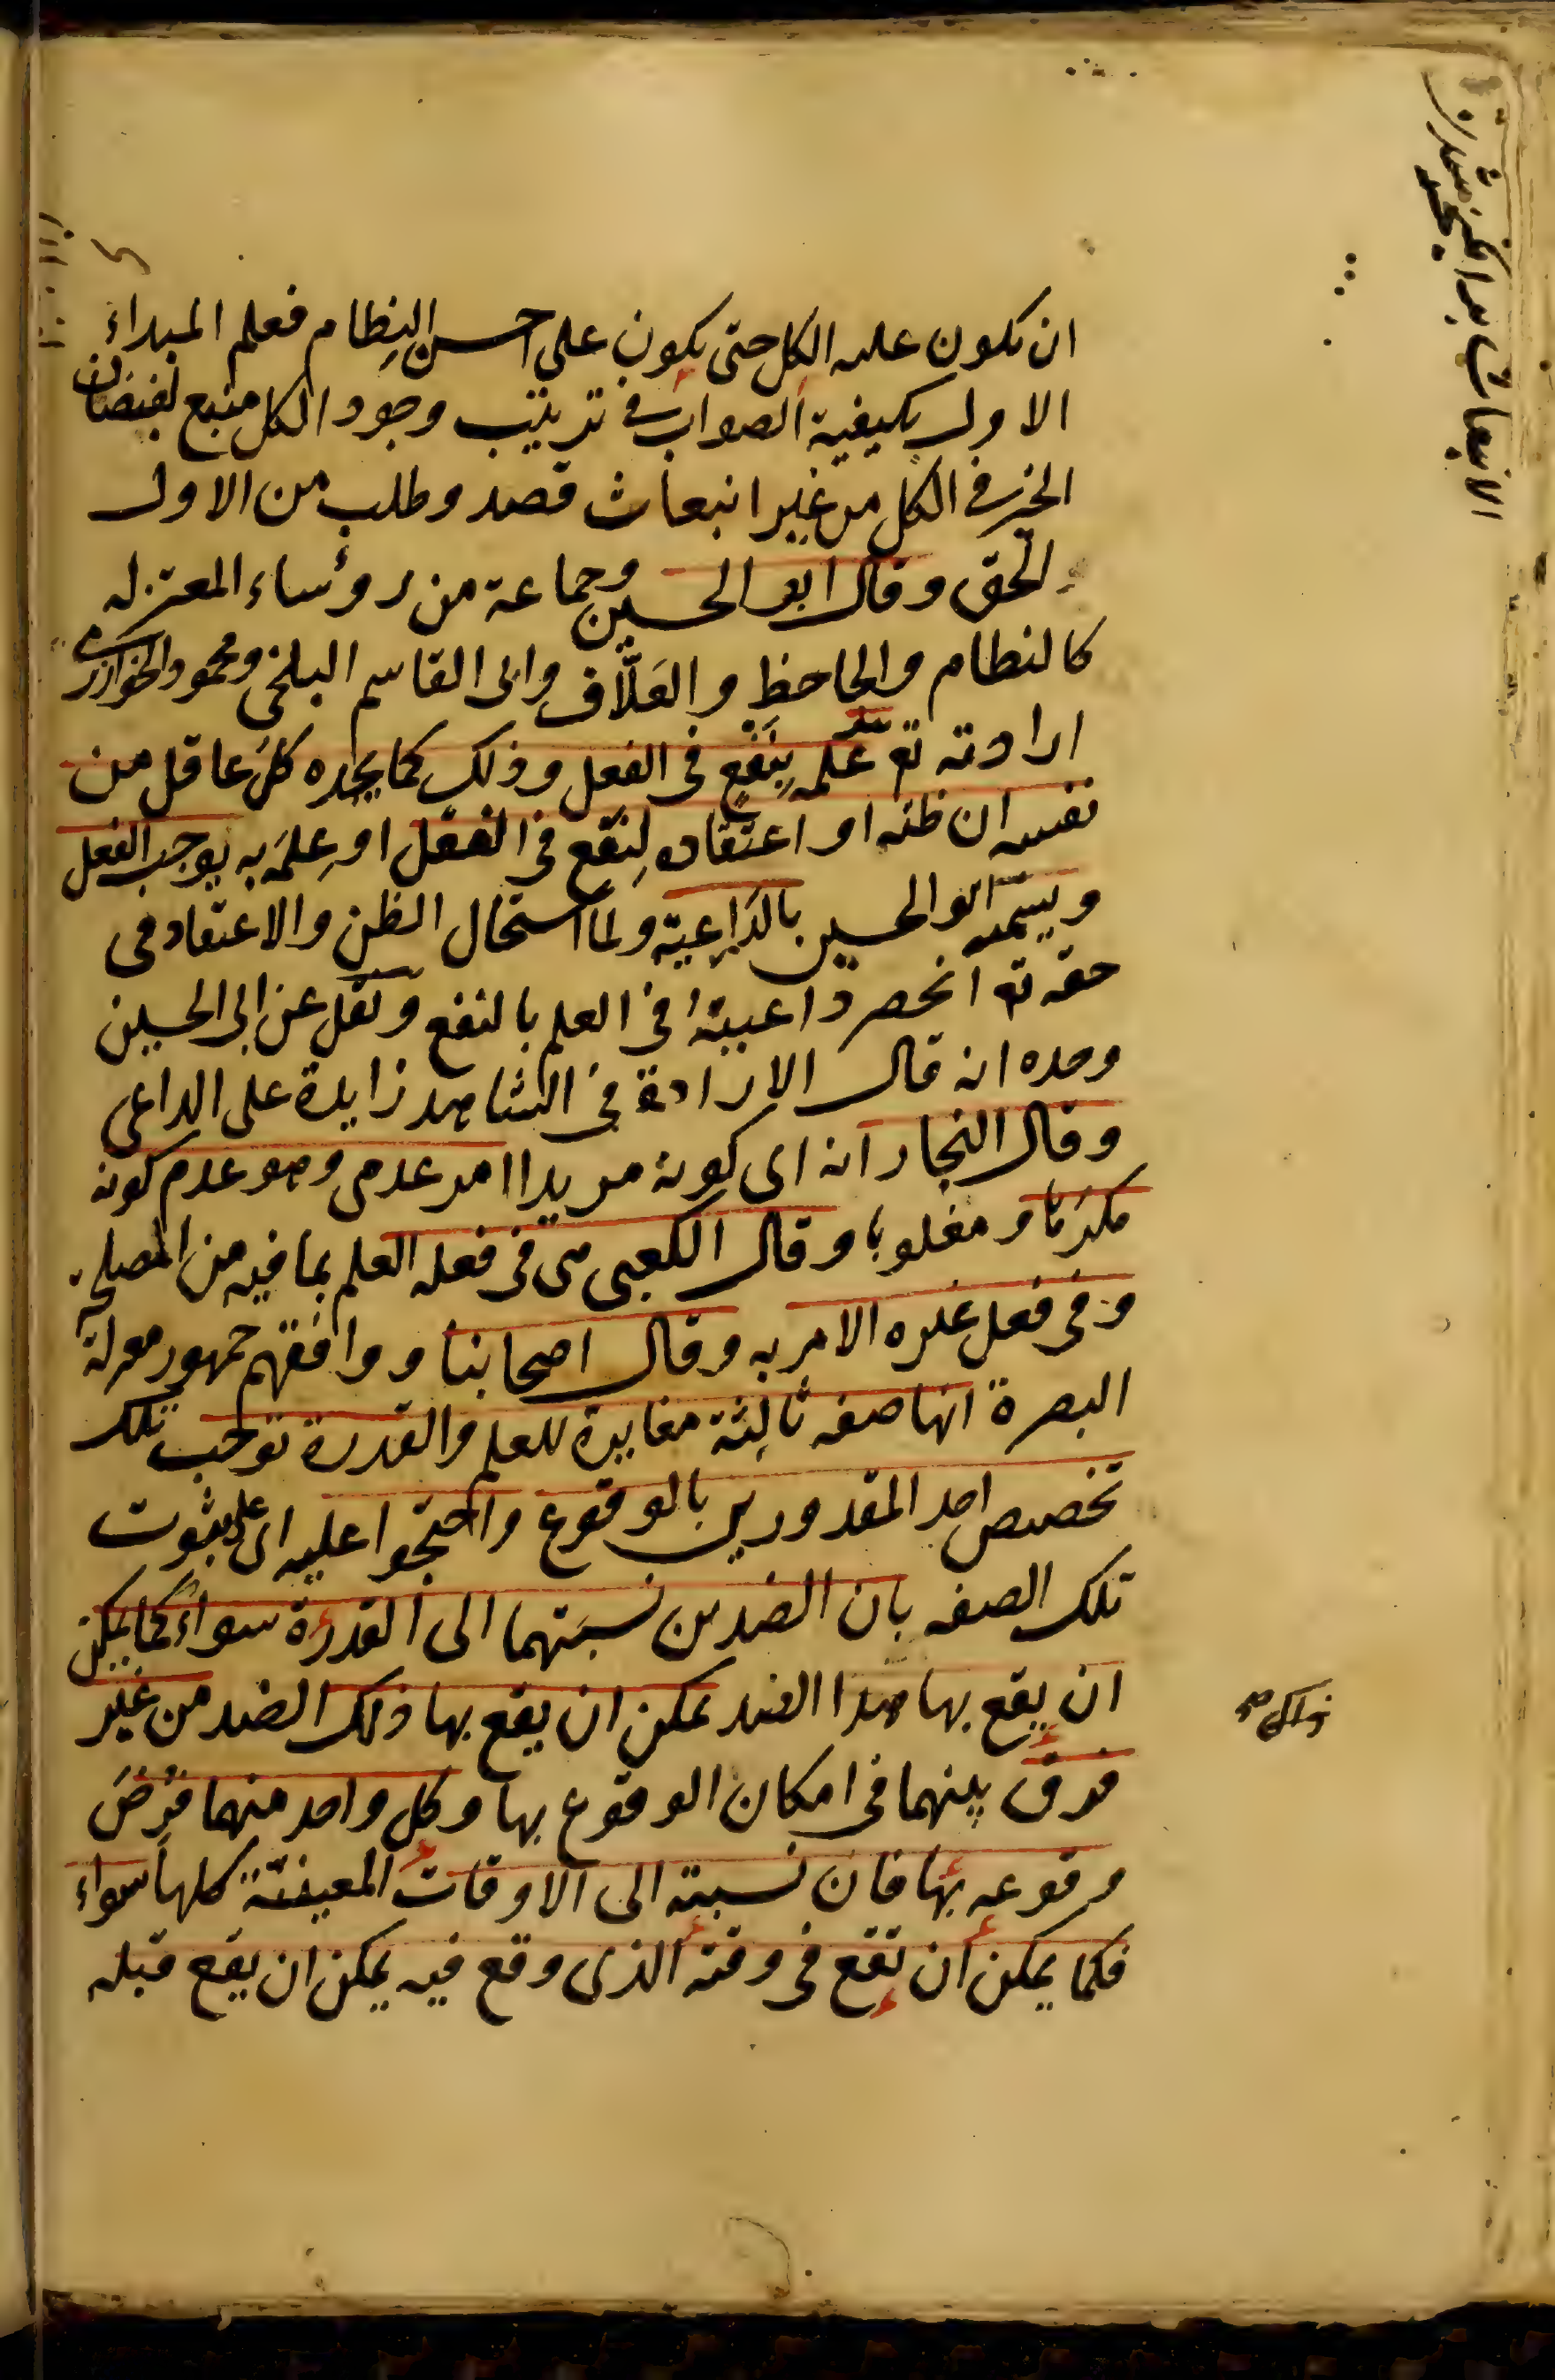 ان يكون عليه الكل حتى يكون على احسن النظام فعلم المبداء
الاول بكيفية الصواب في ترتيب وجود الكل منبع لفيضان
الخير في الكل من غير انبعاث قصد وطلب من الاول
الحق وقال ابو الحسين وجماعة من رؤساء المعتزله
كالنظام والجاحظ والعلّاف وابى القاسم البلخى ومحمود الخوارزمى
ارادته تع علمه بنفع فى الفعل وذلك كما يجده كل عاقل من
نفسه ان ظنه او اعتقاده لنفع في الفعل او علمه به يوجب الفعل
ويسميه ابو الحسين بالداعية ولما استحال الظن والاعتقاد فى
حقه تع انحصر داعيته في العلم بالنفع ونقل عن ابى الحسين
وحده انه قال الارادة في الشاهد زايدة على الداعى
وقال النجار انه اى كونه مريدا امر عدمى وهو عدم كونه
مكرها ومغلوبا وقال الكعبى هى فى فعله العلم بما فيه من المصلحة
وفى فعل غيره الامر به وقال اصحابنا ووافقهم جمهور معتزلة
البصرة انها صفه ثالثة مغايرة للعلم والقدرة توجب تلك
تخصيص احد المقدورين بالوقوع واحتجوا عليه اى على ثبوت
تلك الصفه بان الضدين نسبتهما الى القدرة سواء كما يمكن
ان يقع بها هذا الضد يمكن ان يقع بها ذلك الضد من غير
فرق بينهما فى امكان الوقوع بها وكل واحد منهما فرض
وقوعه بها فان نسبته الى الاوقات المعينة كلها سواء
فكما يمكن ان يقع فى وقته الذى وقع فيه يمكن ان يقع قبله